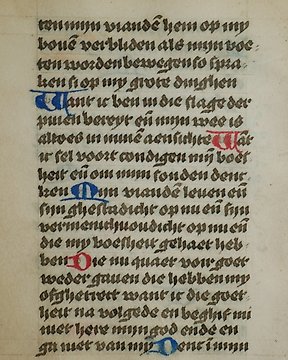 ten mijn vianden hem op my
bouē verbliden als mijn voe-
ten worden bewegen so spra-
ken si op my grote dinghen
Want ic ben in die slage der
pinen bereyt eñ mijn wee is
altoes in minē aensichte Wāt
ic sel voort condigen mijn boes
heit eñ om mijn sonden denc-
ken Mijn vianden leuen eñ
sijn ghestadicht op mi eñ sijn
vermenichuoudicht op mi eñ
die my boesheit gehaet heb-
ben Die mi quaet voir goet
weder gauen die hebben my
ofghetreet want ic die goet
heit na volgede en beghif mi
niet here mijn god ende en
ga niet van mi Denct ī mijn